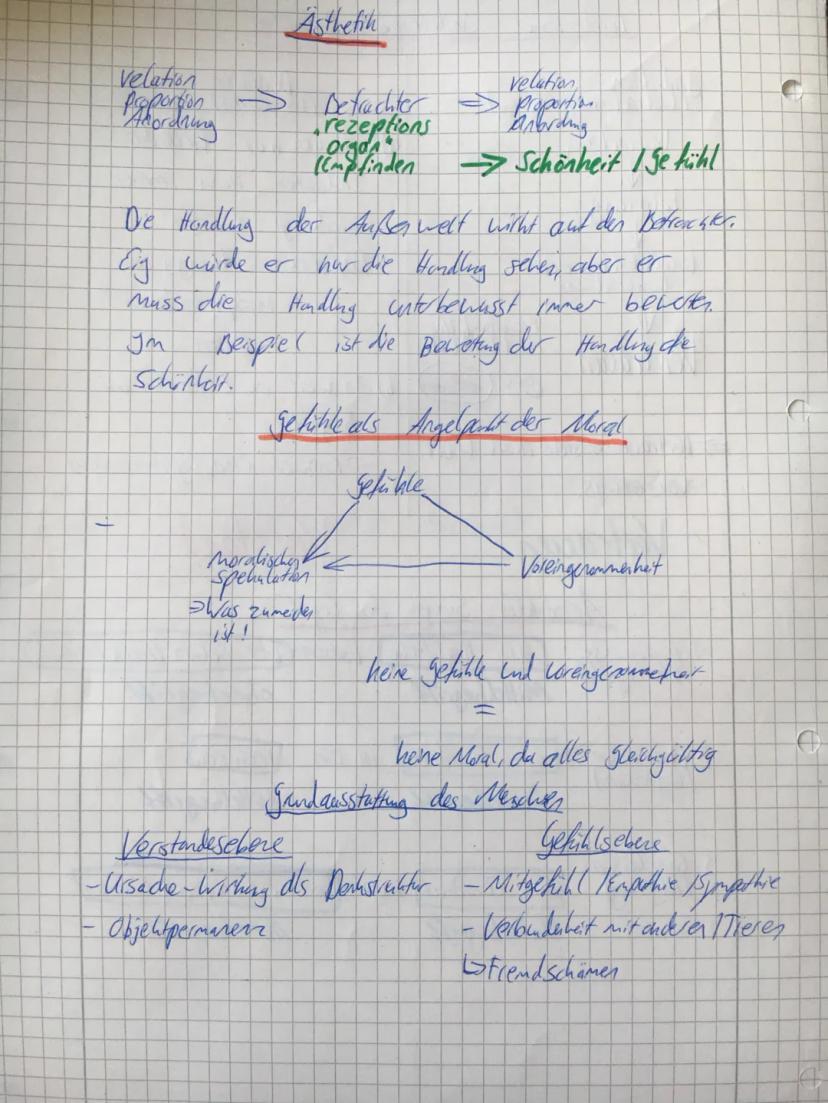 Ästhetik
relation
Proportion
Anordnung
→
Betrachter
"rezeptions
organ"
/Empfinden
⇒
relation
proportion
Anordnung
→ Schönheit / Gefühl
Die Handlung der Außenwelt wirkt auf den Betrachter.
Eig würde er nur die Handlung sehen, aber er
muss die Handlung unterbewusst immer bewerten.
Im Beispiel ist die Bewertung der Handlung die
Schönheit.
Gefühle als Angelpunkt der Moral
Gefühle
–
Moralischen
Spekulation
⇒ Was zu meiden
ist!
Voreingenommenheit
keine Gefühle und Voreingenommenheit
=
keine Moral, da alles gleichgültig
Grundausstattung des Menschen
Verstandesebene
- Ursache-Wirkung als Denkstruktur
- Objektpermanenz
Gefühlsebene
- Mitgefühl / Empathie / Sympathie
- Verbundenheit mit anderen / Tieren
↳ Fremdschämen